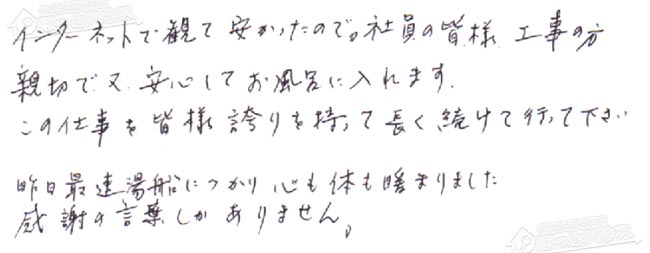 インターネットで観て安かったので。社員の皆様 工事の方
親切で又、安心してお風呂に入れます。
この仕事を皆様誇りを持って長く続けて行って下さい
昨日最速湯船につかり心も体も暖まりました
感謝の言葉しかありません。